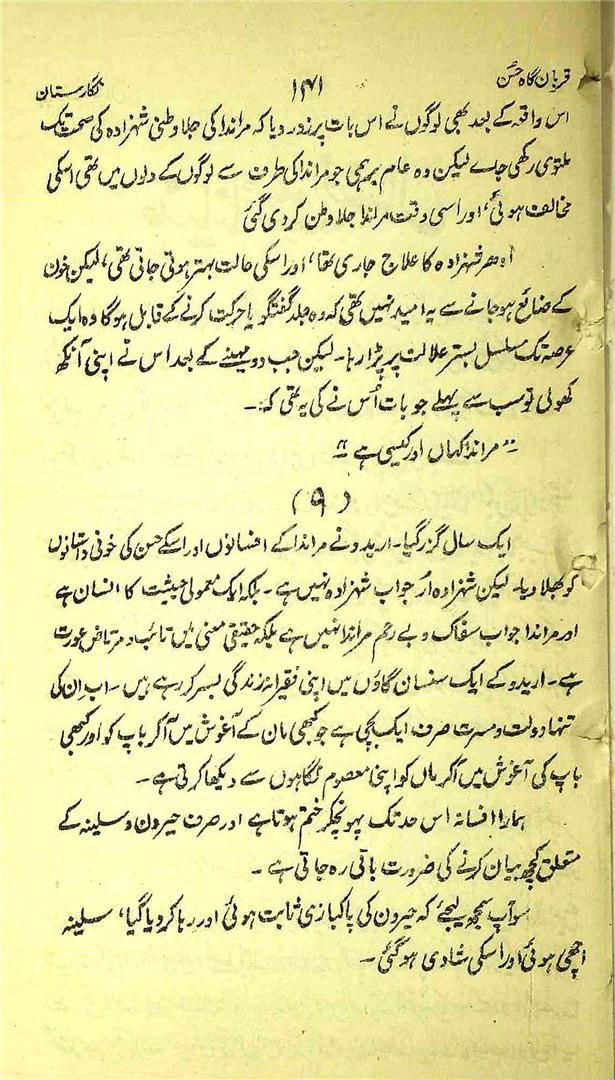 قربان گاہ حسن
۱۴۱
نگارستان
اس واقعہ کے بعد بھی لوگوں نے اس بات پر زور دیا کہ مراندا کی جلا وطنی شہزادہ کی صحت تک
ملتوی رکھی جاے لیکن وہ عام برہمی جو مراندا کی طرف سے لوگوں کے دلوں میں تھی اسکی
مخالف ہوئی، اور اسی وقت مراندا جلا وطن کر دی گئی
اودھر شہزادہ کا علاج جاری تھا، اور اسکی حالت بہتر ہوتی جاتی تھی، لیکن خون
کے ضائع ہو جانے سے یہ امید نہیں تھی کہ وہ جلد گفتگو یا حرکت کرنے کے قابل ہوگا وہ ایک
عرصہ تک مسلسل بستر علالت پر پڑا رہا۔ لیکن جب دو مہینے کے بعد اس نے اپنی آنکھ
کھولی تو سب سے پہلے جو بات اُس نے کی یہ تھی کہ:۔
"مراندا کہاں اور کیسی ہے"۔
(۹)
ایک سال گزر گیا۔ اریدو نے مراندا کے افسانوں اور اسکے حسن کی خونی داستانوں
کو بھلا دیا۔ لیکن شہزادہ اُر جواب شہزادہ نہیں ہے۔ بلکہ ایک معمولی حیثیت کا انسان ہے
اور مراندا جو اب سفاک و بے رحم مراندا نہیں ہے بلکہ حقیقی معنی میں تائب و مرتاض عورت
ہے۔ اریدو کے ایک سنسان گاؤں میں اپنی فقیرانہ زندگی بسر کر رہے ہیں۔ اب اِن کی
تنہا دولت و مسرت صرف ایک بچی ہے جو کبھی مان کے آغوش میں آکر باپ کو اور کبھی
باپ کی آغوش میں آکر ماں کو اپنی معصوم نگاہوں سے دیکھا کرتی ہے۔
ہمارا افسانہ اس حد تک پہونچکر ختم ہوتا ہے اور صرف حیرون و سلینہ کے
متعلق کچھ بیان کرنے کی ضرورت باقی رہ جاتی ہے۔
سو آپ سمجھ لیجئے کہ حیرون کی پاکبازی ثابت ہوئی اور رہا کر دیا گیا، سلینہ
اچھی ہوئی اور اسکی شادی ہوگئی۔